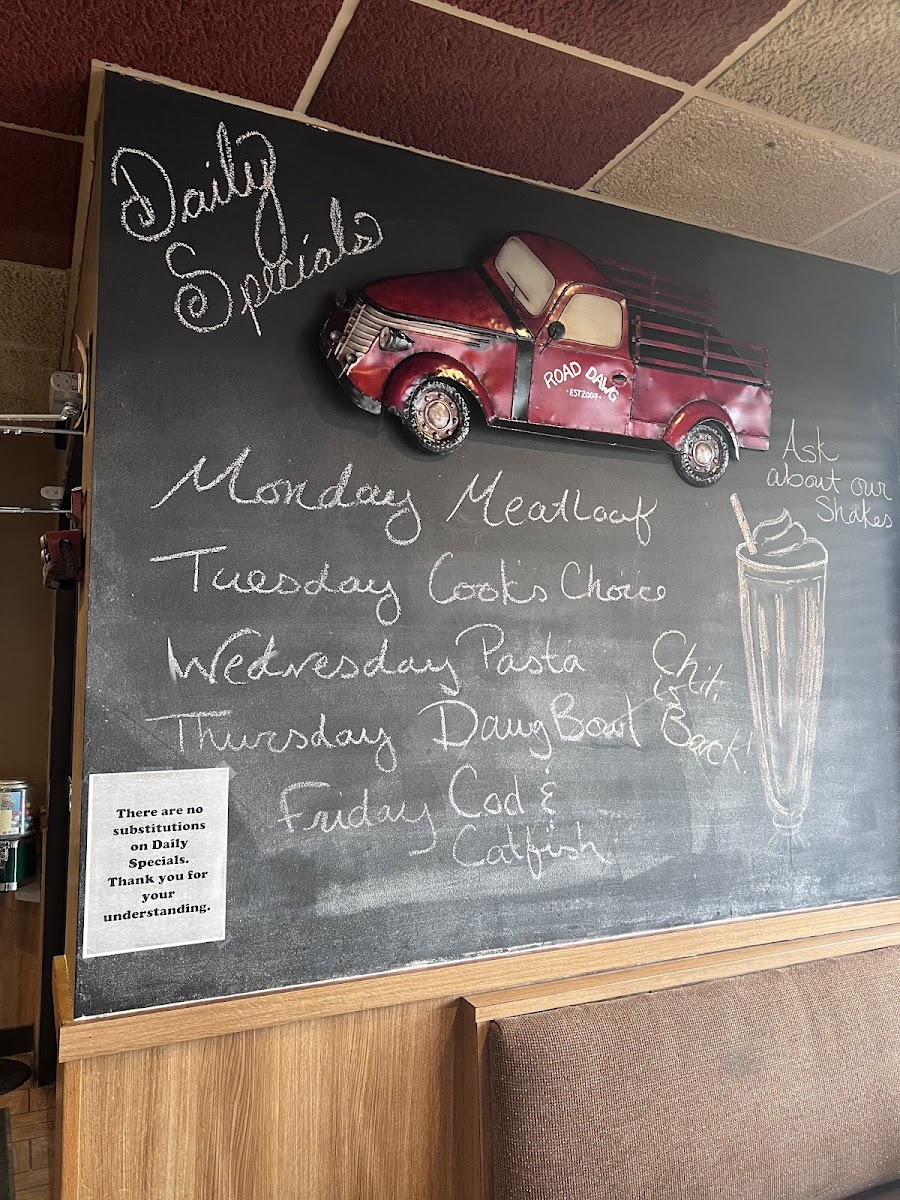 Daily
Specials
ROAD DAWG
·EST2007·
Ask
about our
Shakes
Monday Meatloaf
Tuesday Cook's Choice
Wednesday Pasta
Thursday Dawg Bowl
Friday Cod &
Catfish
Chili
is
Back!
There are no
substitutions
on Daily
Specials.
Thank you for
your
understanding.